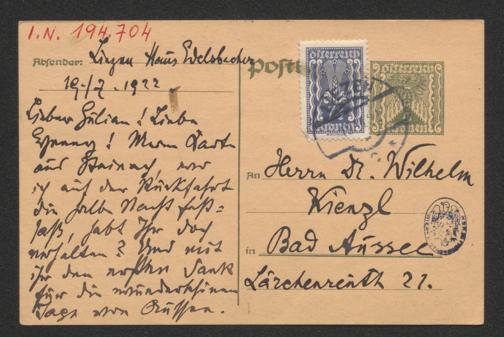 I.N. 194.704
Absender: Liezen Haus Edelsbacher
19./7. 1922
Lieber Julian! Liebe
Henny! Meine Karte
aus Stainach, wo
ich auf der Rückfahrt
die halbe Nacht
saß, habt Ihr doch
erhalten? Und mit
ihr den ersten Dank
für die wunderschönen
Tage von Aussee.
Postk
Österreich
Kronen
Österreich
Kronen
An Herrn Dr. Wilhelm
Kienzl
in Bad Aussee
Lärchenreith 21.